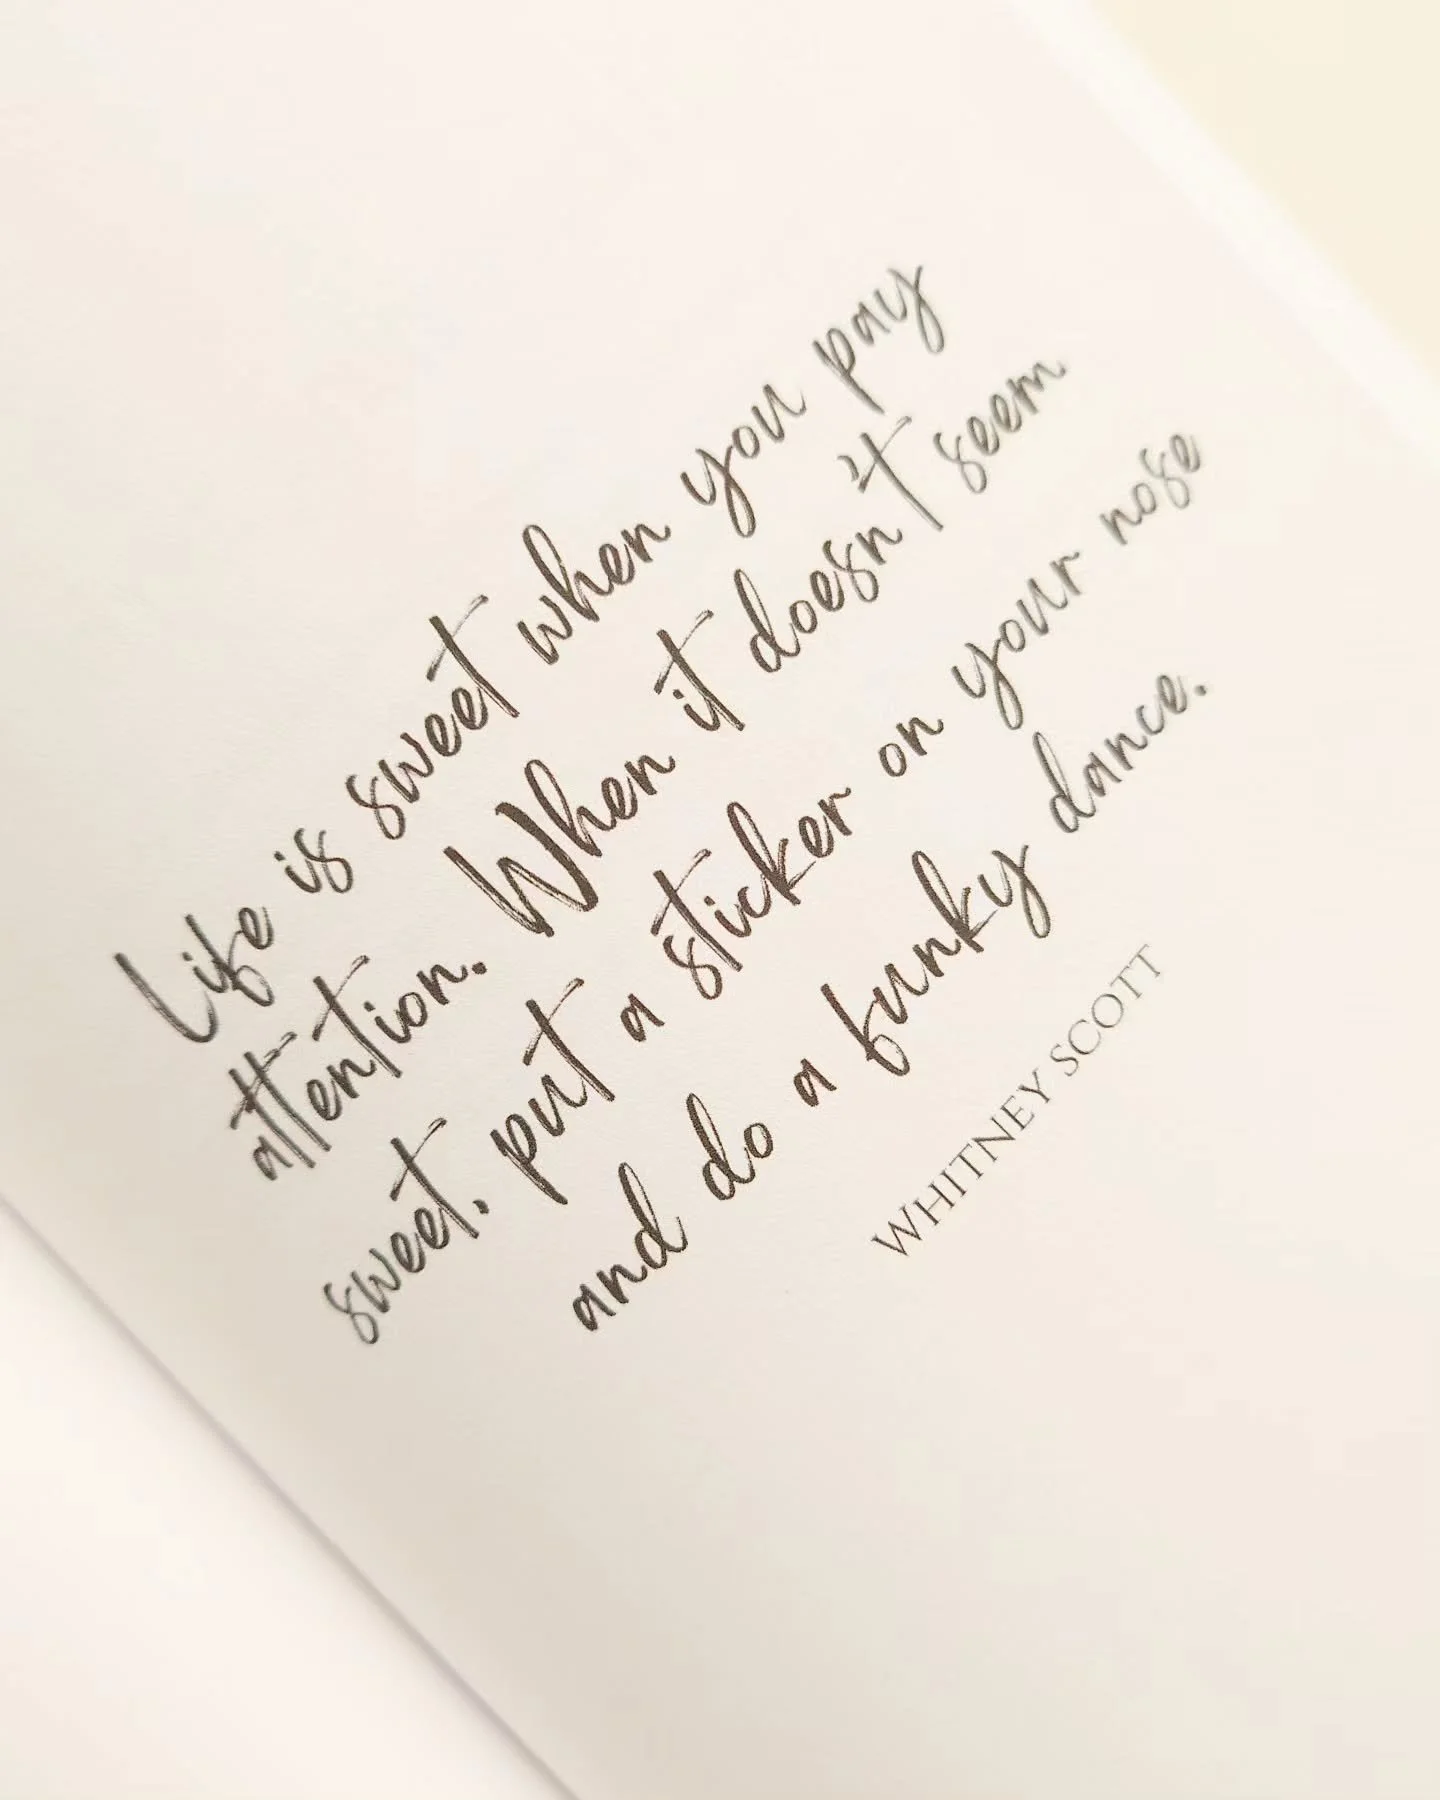 Life is sweet when you pay
attention. When it doesn't seem
sweet, put a sticker on your nose
and do a funky dance.
WHITNEY SCOTT